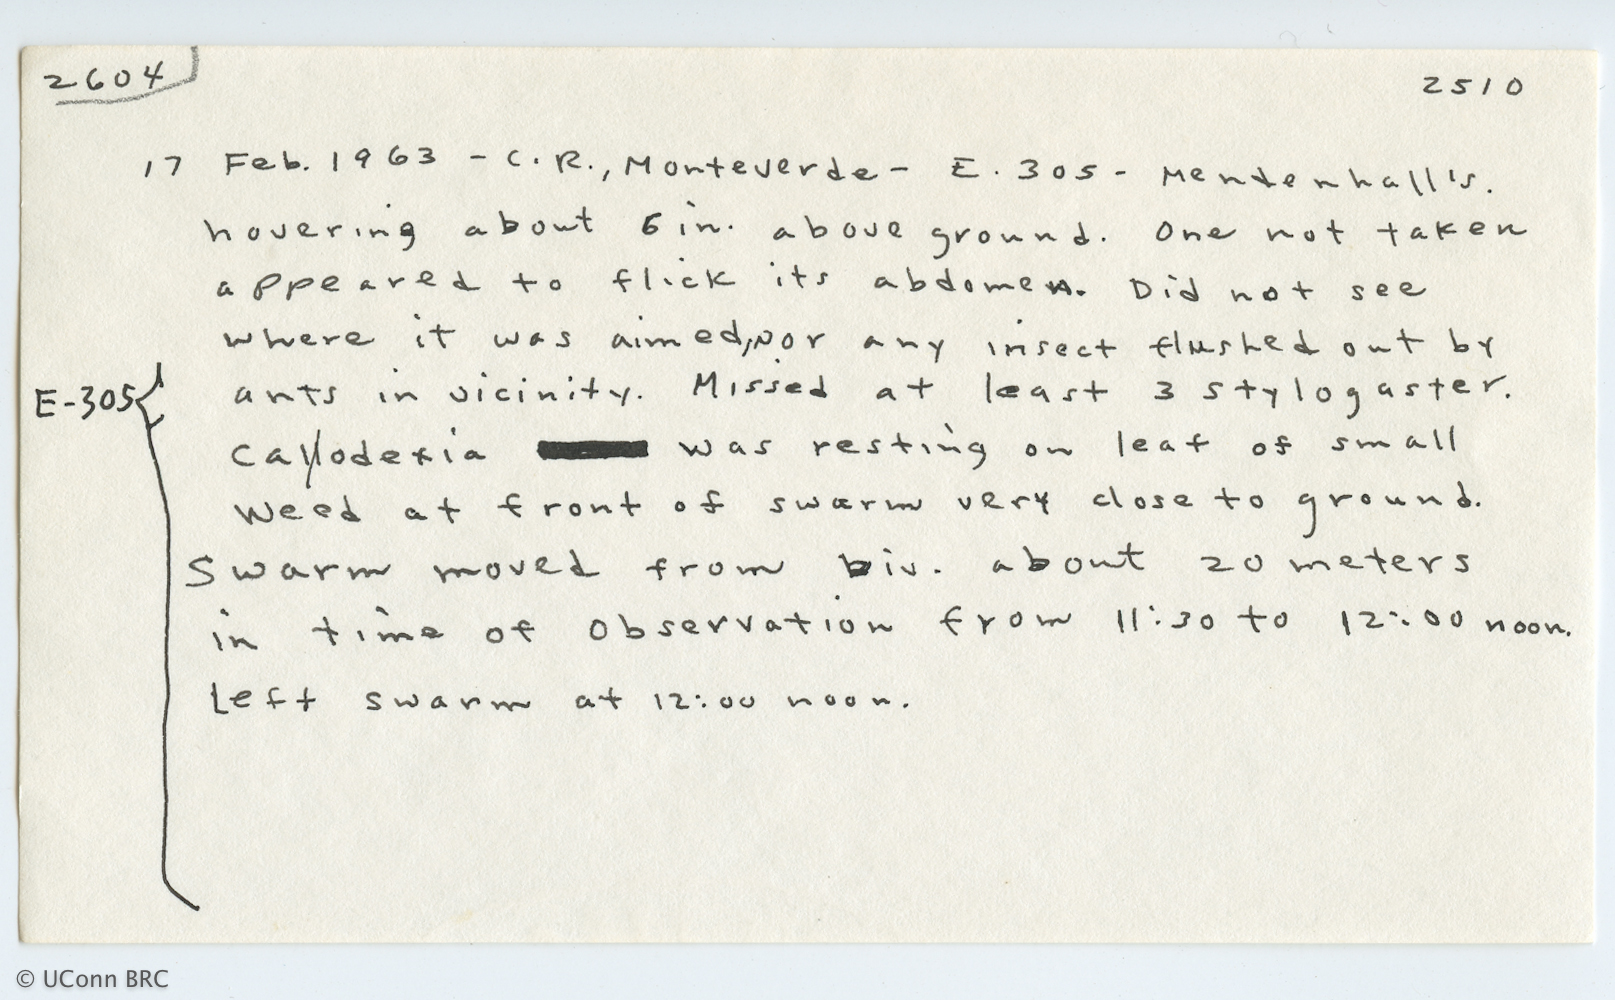 2604
2510
17 Feb. 1963 - C.R., Monteverde - E. 305 - Mendenhall's.
hovering about 6 in. above ground. One not taken
appeared to flick its abdomen. Did not see
where it was aimed, nor any insect flushed out by
E-305
ants in vicinity. Missed at least 3 stylogaster.
Callodexia was resting on leaf of small
weed at front of swarm very close to ground.
Swarm moved from biv. about 20 meters
in time of observation from 11:30 to 12:00 noon.
Left swarm at 12:00 noon.
© UConn BRC